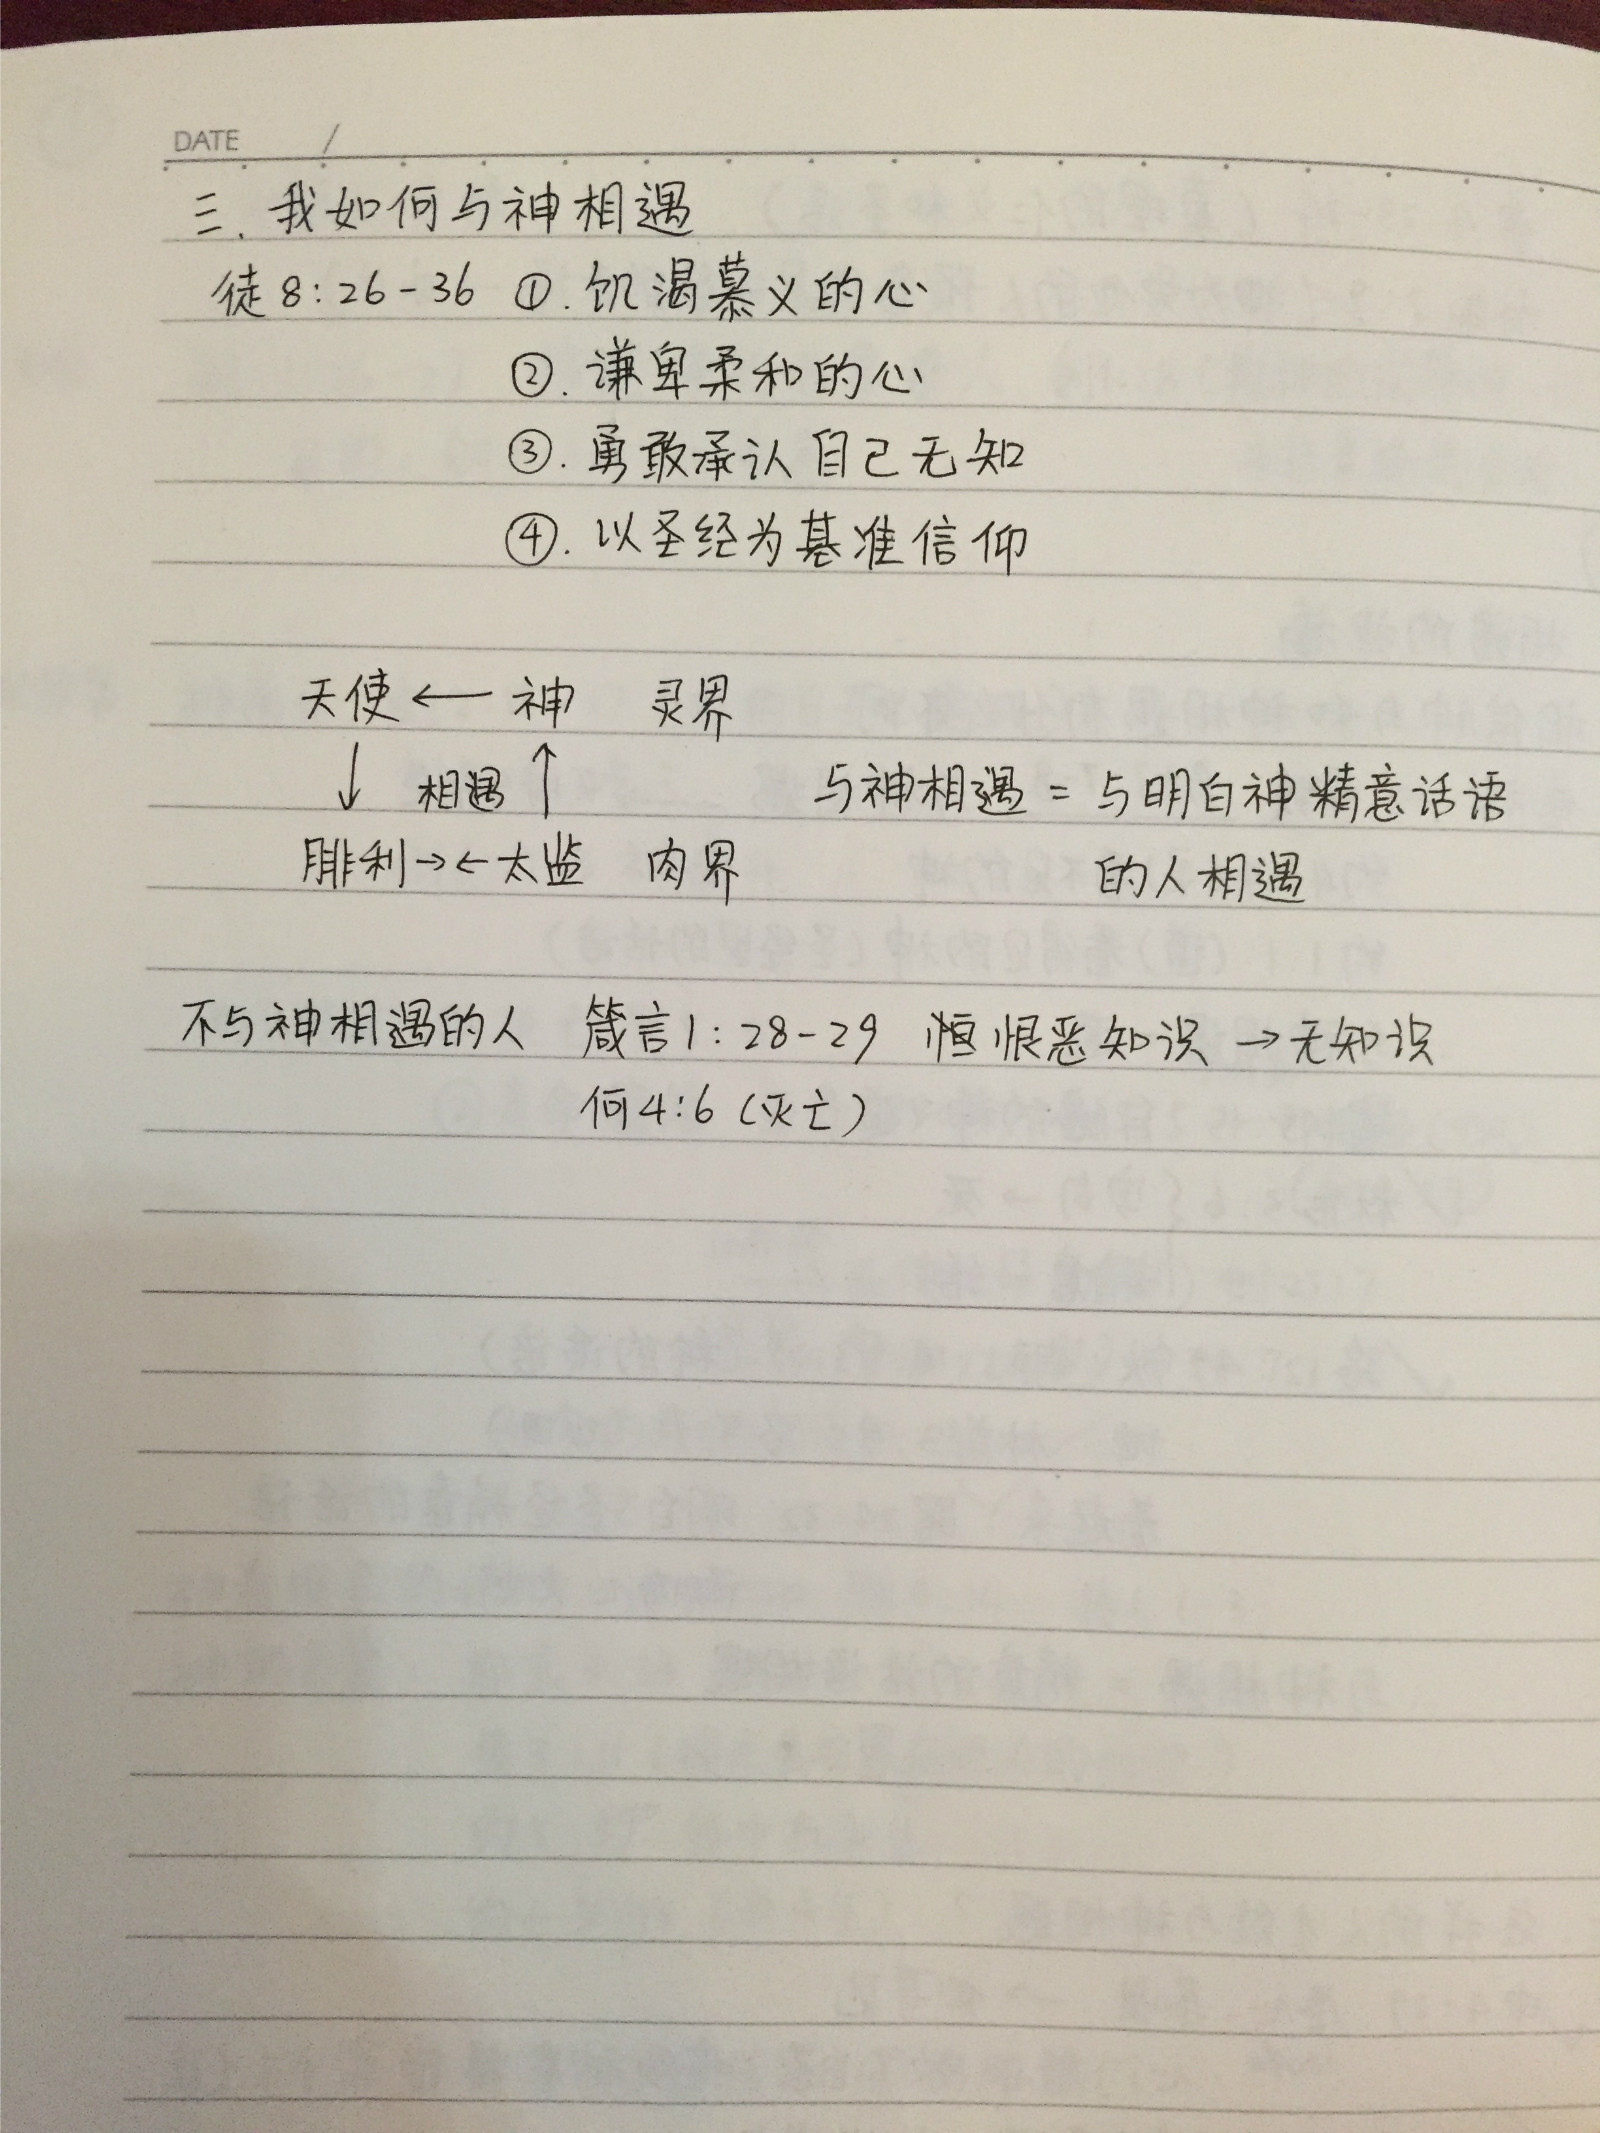 DATE /
三. 我如何与神相遇
徒8:26-36 ①. 饥渴慕义的心
②. 谦卑柔和的心
③. 勇敢承认自己无知
④. 以圣经为基准信仰
天使 ← 神 灵界
↓ 相遇 ↑ 与神相遇 = 与明白神精意话语
腓利→←太监 肉界 的人相遇
不与神相遇的人 箴言1:28-29 恒恨恶知识 →无知识
何4:6 (灭亡)